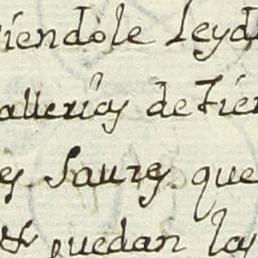 iendole Leyd
allerias de tier
es Saures que
puedan las